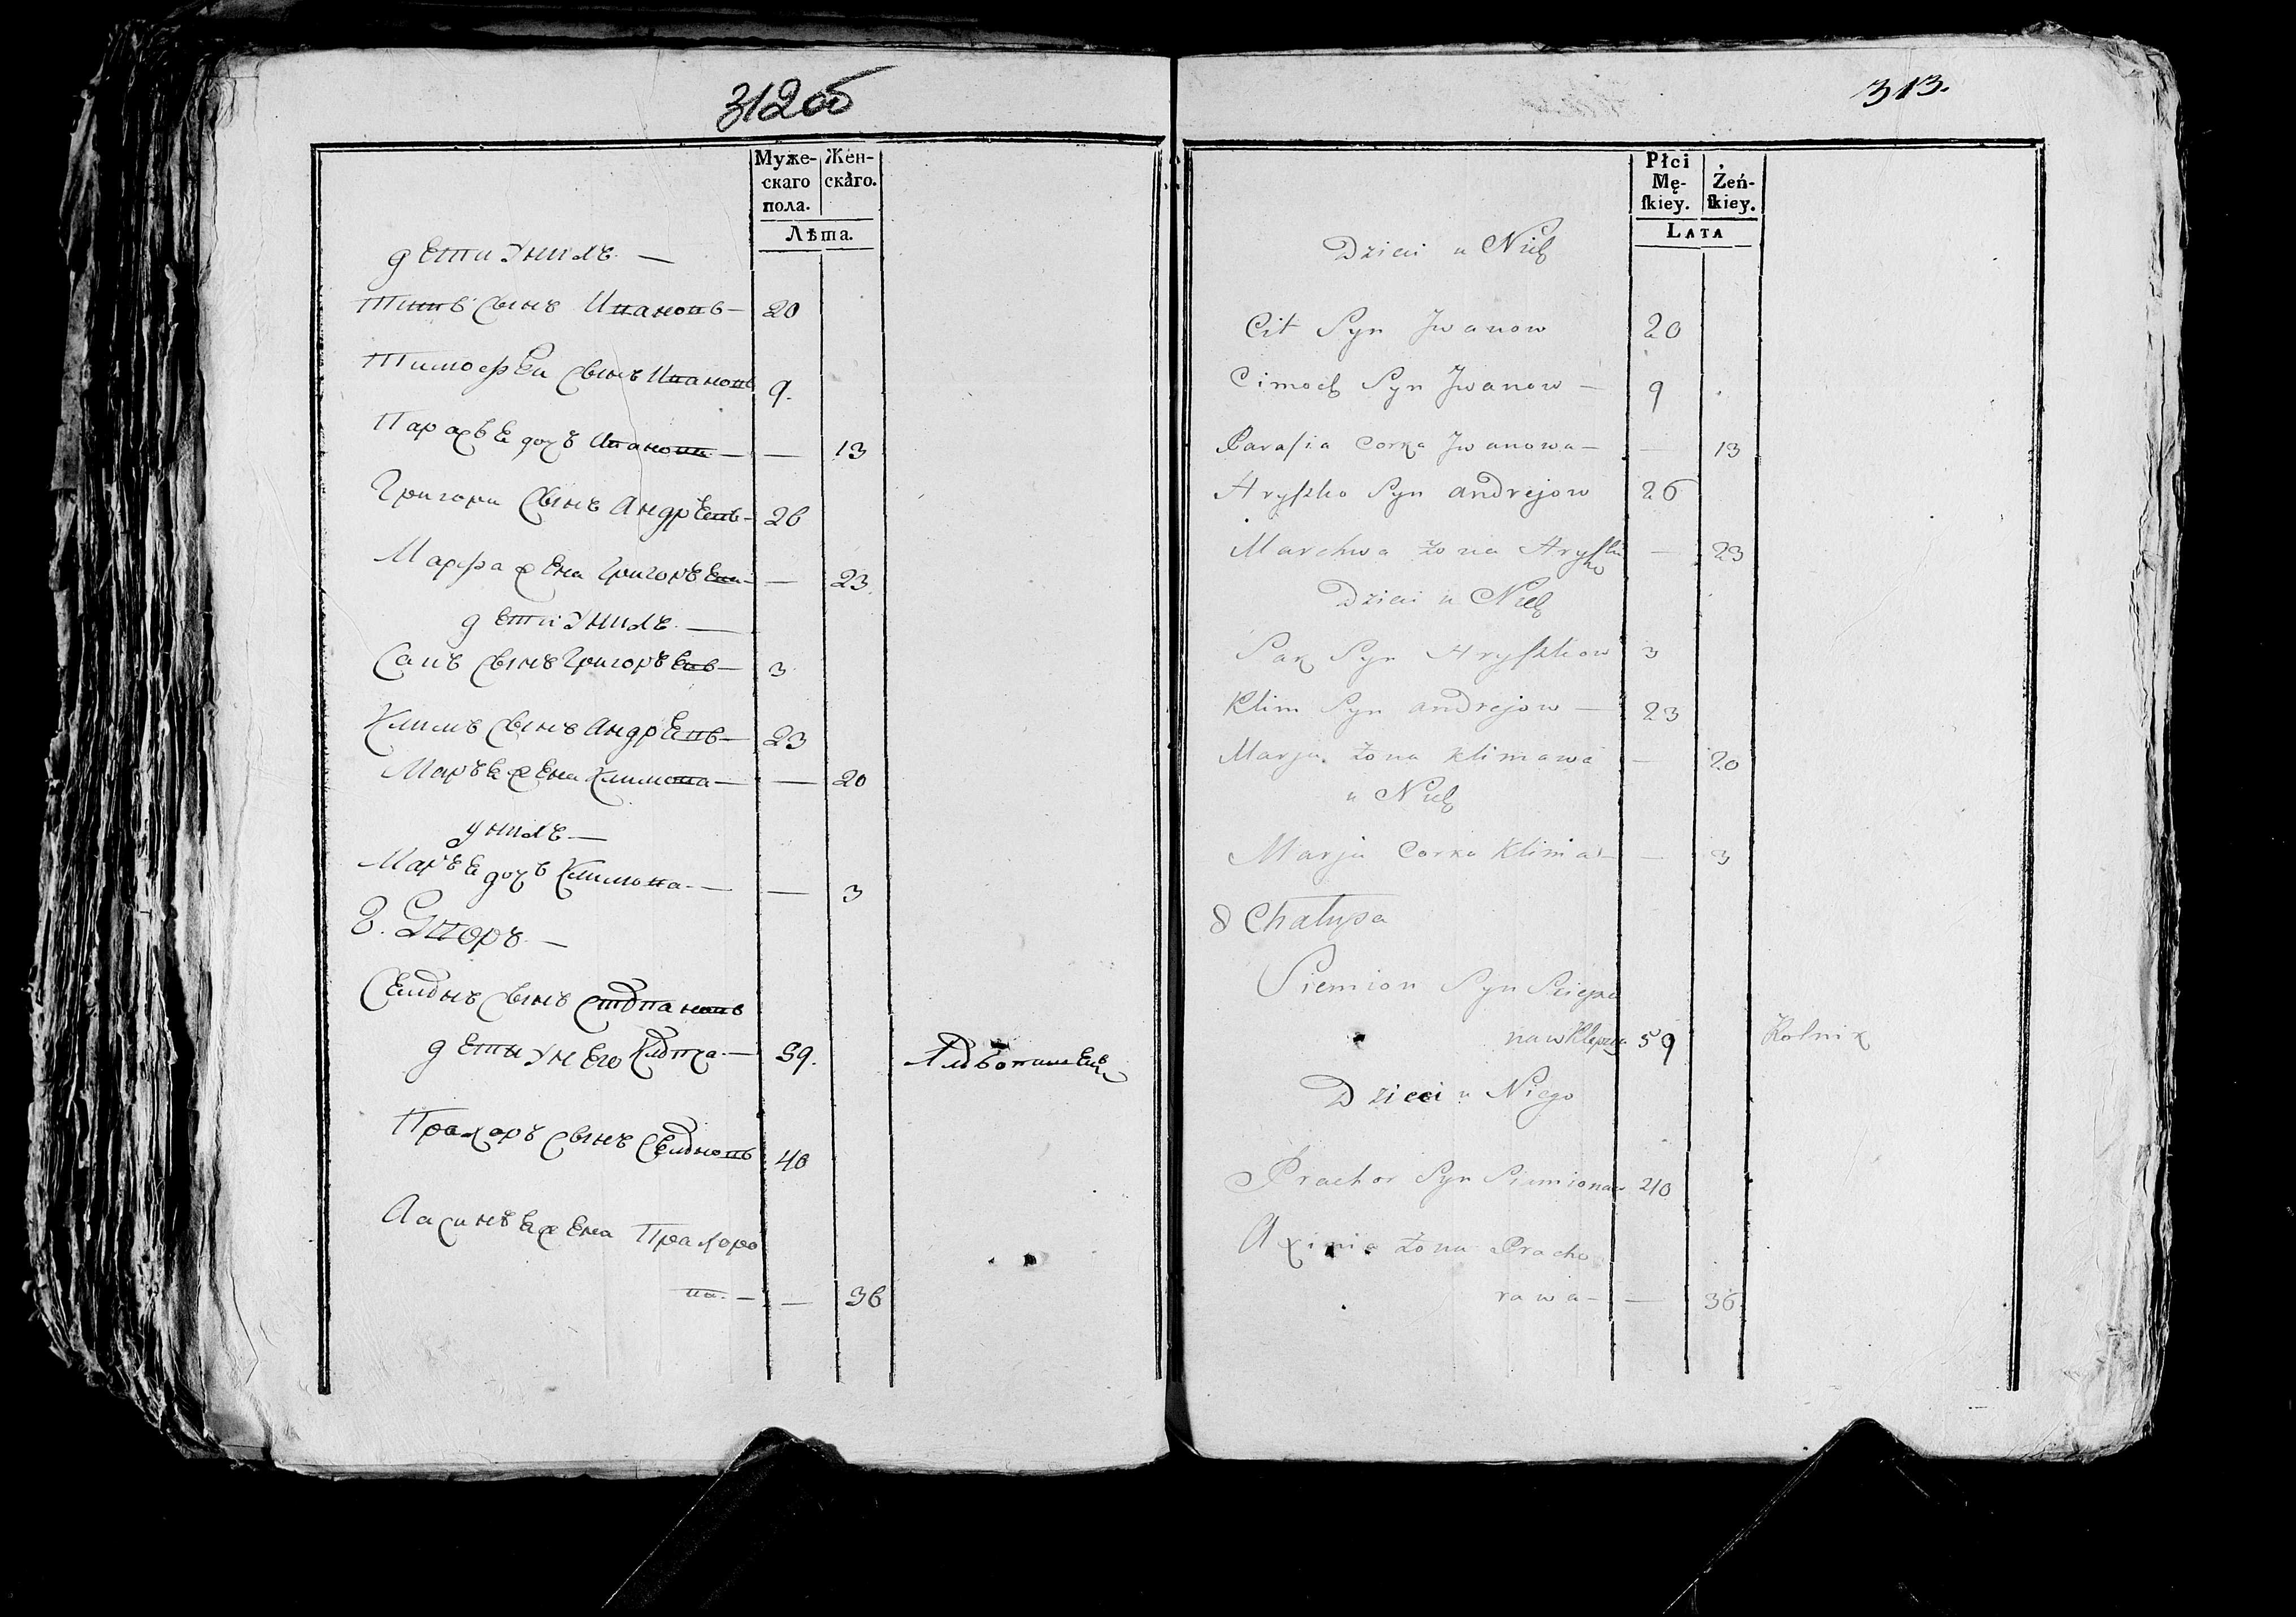 312об
Муже-
скаго
пола.
Жен-
скаго.
Лѣта.
дети унихъ —
Титъ сынъ Ивановъ — 20
Тимофеи сынъ Ивановъ 9.
дочъ Иванова — — 13
Григори сынъ Андреевъ — 26
Марфа жена Григорьева — — 23.
дети унихъ —
сынъ Григорьевъ — 3
Климъ сынъ Андреевъ — 23
Марья жена Климова — — 20
унихъ —
Марья дочъ Климова — — 3
8. Дворъ —
Семионъ сынъ Стиопановъ
дети унего — 59.
Прахоръ сынъ Семионовъ 40
жена Прахоро
ва. — — 36
313.
Płci
Mę-
skiey.
Żeń-
skiey.
LATA
Dzieci u Nich
Cit Syn Jwanow 20
Cimoch Syn Jwanow — 9
Parasia Corka Jwanowa — — 13
Hryszko Syn andrejow 26
Marchwa żona Hryszko — 23
Dzieci u Nich
Syn Hryszkow 3
Klim Syn andrejow — 23
Marja żona Klimawa — 20
u Nich
Marja Corka Klima — — 3
8 Chałupa
Siemion Syn Sciepa
naw 59 Rolnik
Dzieci u Niego
Prachor Syn Siemionaw 40
Axinia żona Pracho
rawa — — 36